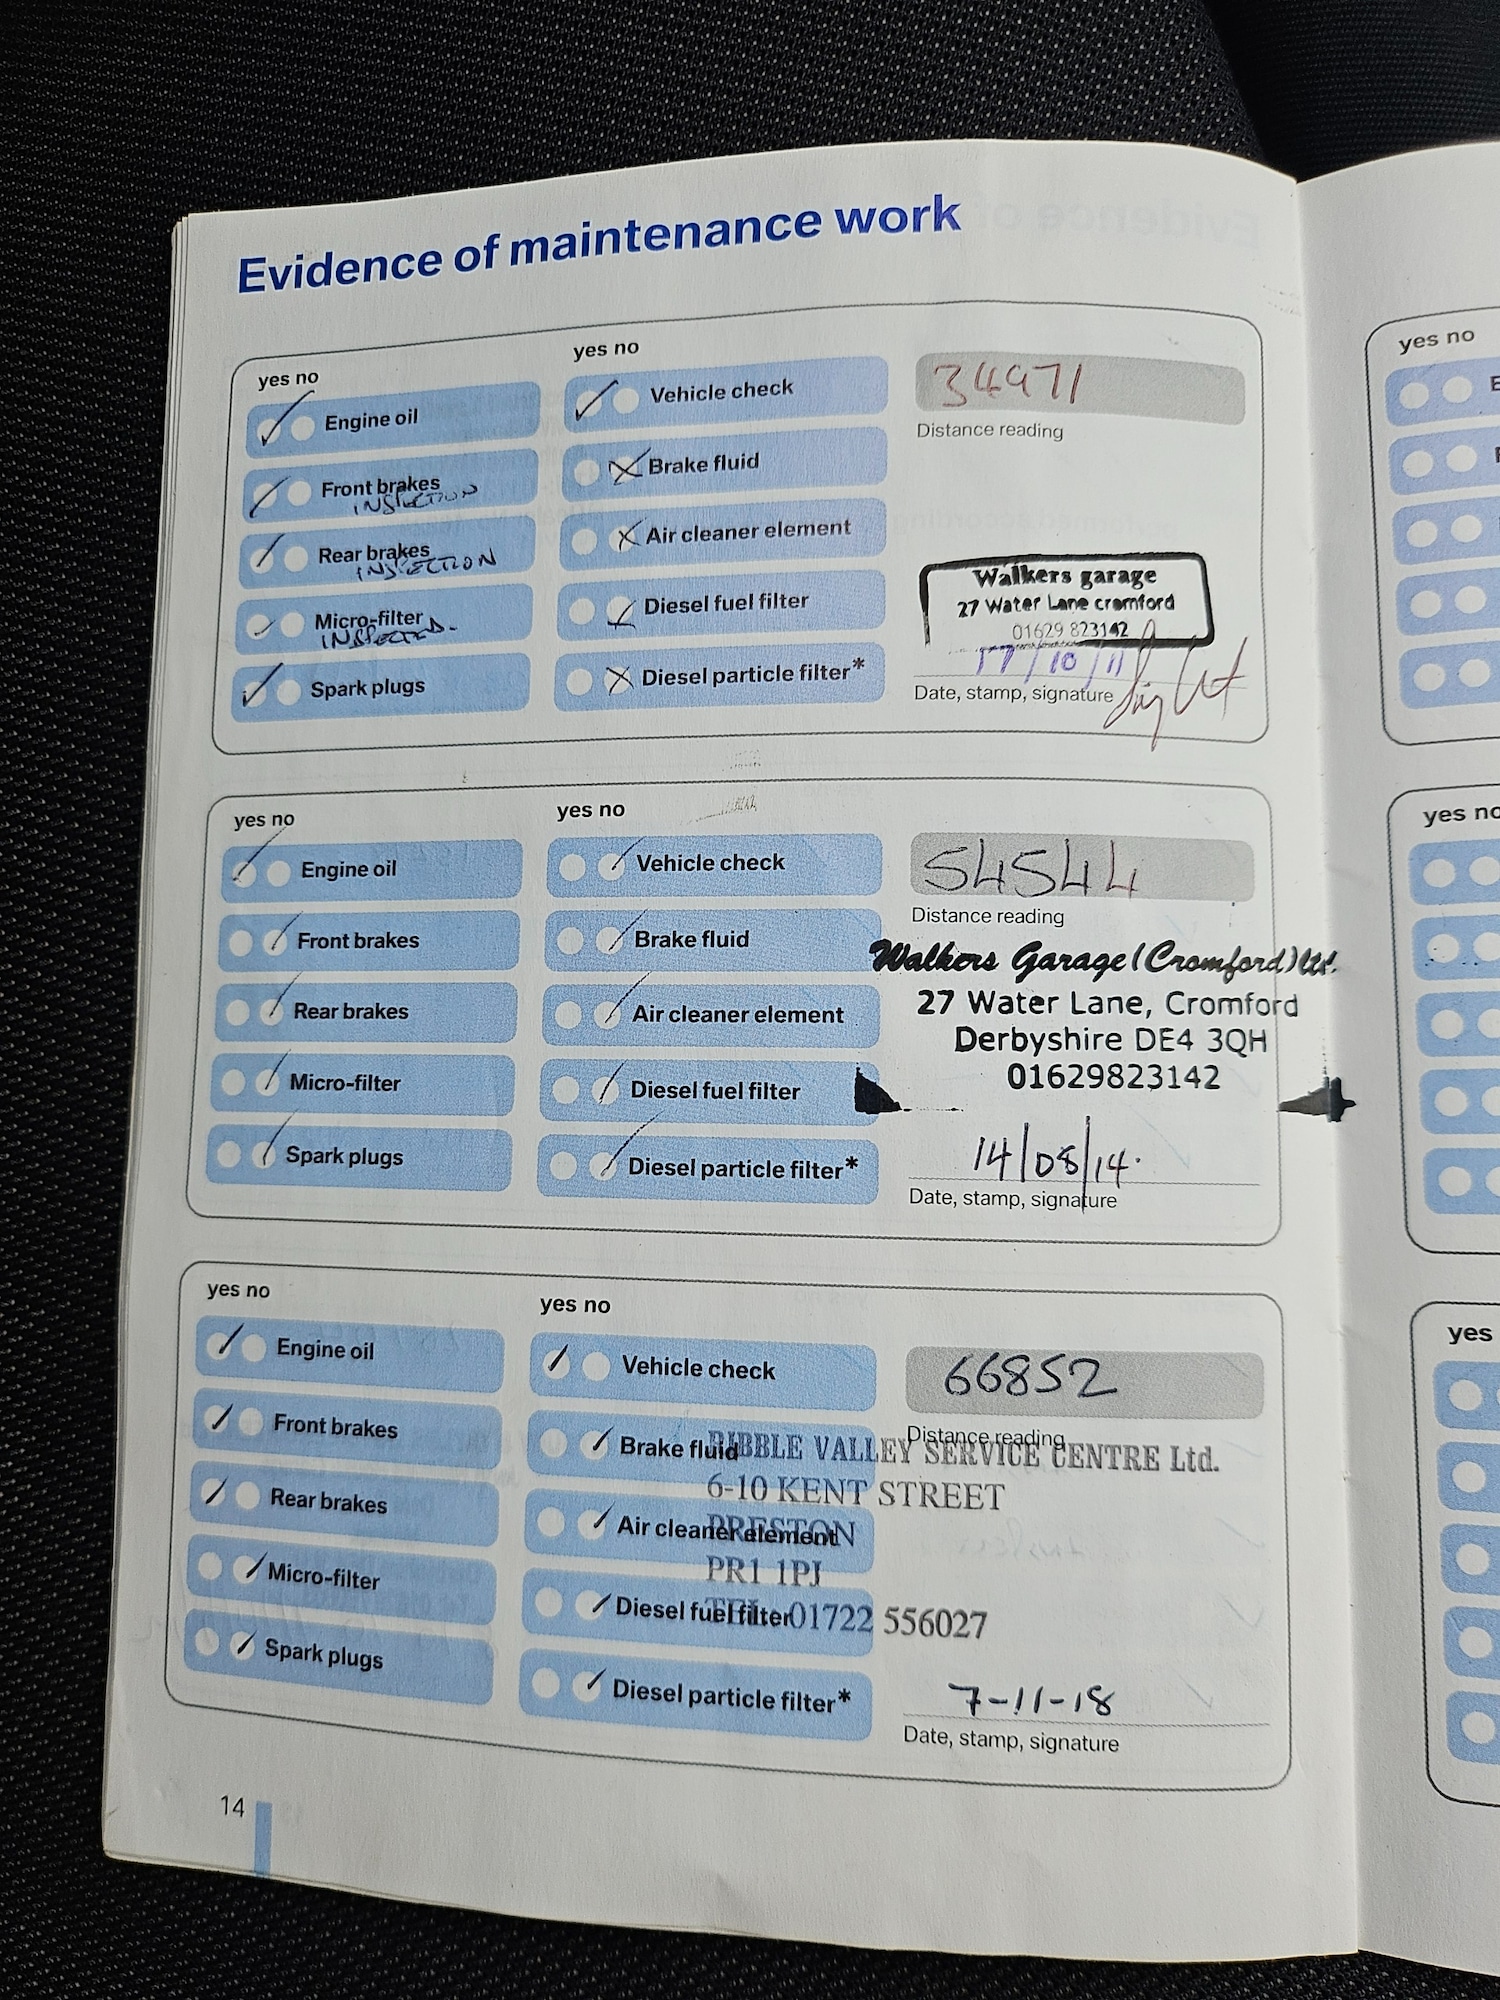 Evidence of maintenance work
yes no
yes no
Engine oil
Vehicle check
34971
Distance reading
Front brakes
INSPECTION
Brake fluid
Rear brakes
INSPECTION
Air cleaner element
Micro-filter
INSPECTED.
Diesel fuel filter
Spark plugs
Diesel particle filter*
Walkers garage
27 Water Lane cromford
01629 823142
17/10/11
Date, stamp, signature
yes no
yes no
Engine oil
Vehicle check
54544
Distance reading
Front brakes
Brake fluid
Rear brakes
Air cleaner element
Micro-filter
Diesel fuel filter
Spark plugs
Diesel particle filter*
Walkers Garage (Cromford) Ltd.
27 Water Lane, Cromford
Derbyshire DE4 3QH
01629823142
14/08/14.
Date, stamp, signature
yes no
yes no
Engine oil
Vehicle check
66852
Distance reading
Front brakes
Brake fluid
Rear brakes
Air cleaner element
Micro-filter
Diesel fuel filter
Spark plugs
Diesel particle filter*
RIBBLE VALLEY SERVICE CENTRE Ltd.
6-10 KENT STREET
PRESTON
PR1 1PJ
TEL: 01722 556027
7-11-18
Date, stamp, signature
14
yes no
yes no
yes